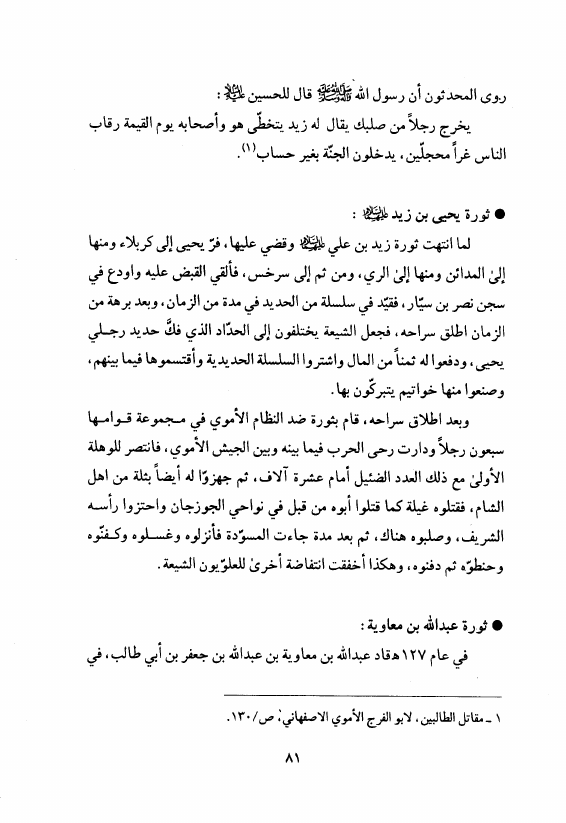 روى المحدثون أن رسول الله ﷺ قال للحسين عليه السلام :
يخرج رجلاً من صلبك يقال له زيد يتخطّى هو وأصحابه يوم القيمة رقاب
الناس غراً محجلّين، يدخلون الجنّة بغير حساب(١).
● ثورة يحيى بن زيد عليه السلام :
لما انتهت ثورة زيد بن علي عليه السلام وقضي عليها، فرّ يحيى إلى كربلاء ومنها
إلىٰ المدائن ومنها إلىٰ الري، ومن ثم إلى سرخس، فألقي القبض عليه واودع في
سجن نصر بن سيّار، فقيّد في سلسلة من الحديد في مدة من الزمان، وبعد برهة من
الزمان اطلق سراحه، فجعل الشيعة يختلفون إلى الحدّاد الذي فكَّ حديد رجلي
يحيى، ودفعوا له ثمناً من المال واشتروا السلسلة الحديدية وأقتسموها فيما بينهم،
وصنعوا منها خواتيم يتبركّون بها.
وبعد اطلاق سراحه، قام بثورة ضد النظام الأموي في مجموعة قوامها
سبعون رجلاً ودارت رحى الحرب فيما بينه وبين الجيش الأموي، فانتصر للوهلة
الأولىٰ مع ذلك العدد الضئيل أمام عشرة آلاف، ثم جهزوا له أيضاً بثلة من اهل
الشام، فقتلوه غيلة كما قتلوا أبوه من قبل في نواحي الجوزجان واحتزوا رأسه
الشريف، وصلبوه هناك، ثم بعد مدة جاءت المسوّدة فأنزلوه وغسلوه وكفنّوه
وحنطوّه ثم دفنوه، وهكذا أخفقت انتفاضة أخرىٰ للعلوّيون الشيعة.
● ثورة عبدالله بن معاوية :
في عام ١٢٧ ه‍ قاد عبدالله بن معاوية بن عبدالله بن جعفر بن أبي طالب، في
١ ـ مقاتل الطالبين، لابو الفرج الأموي الاصفهاني، ص/١٣٠.
٨١